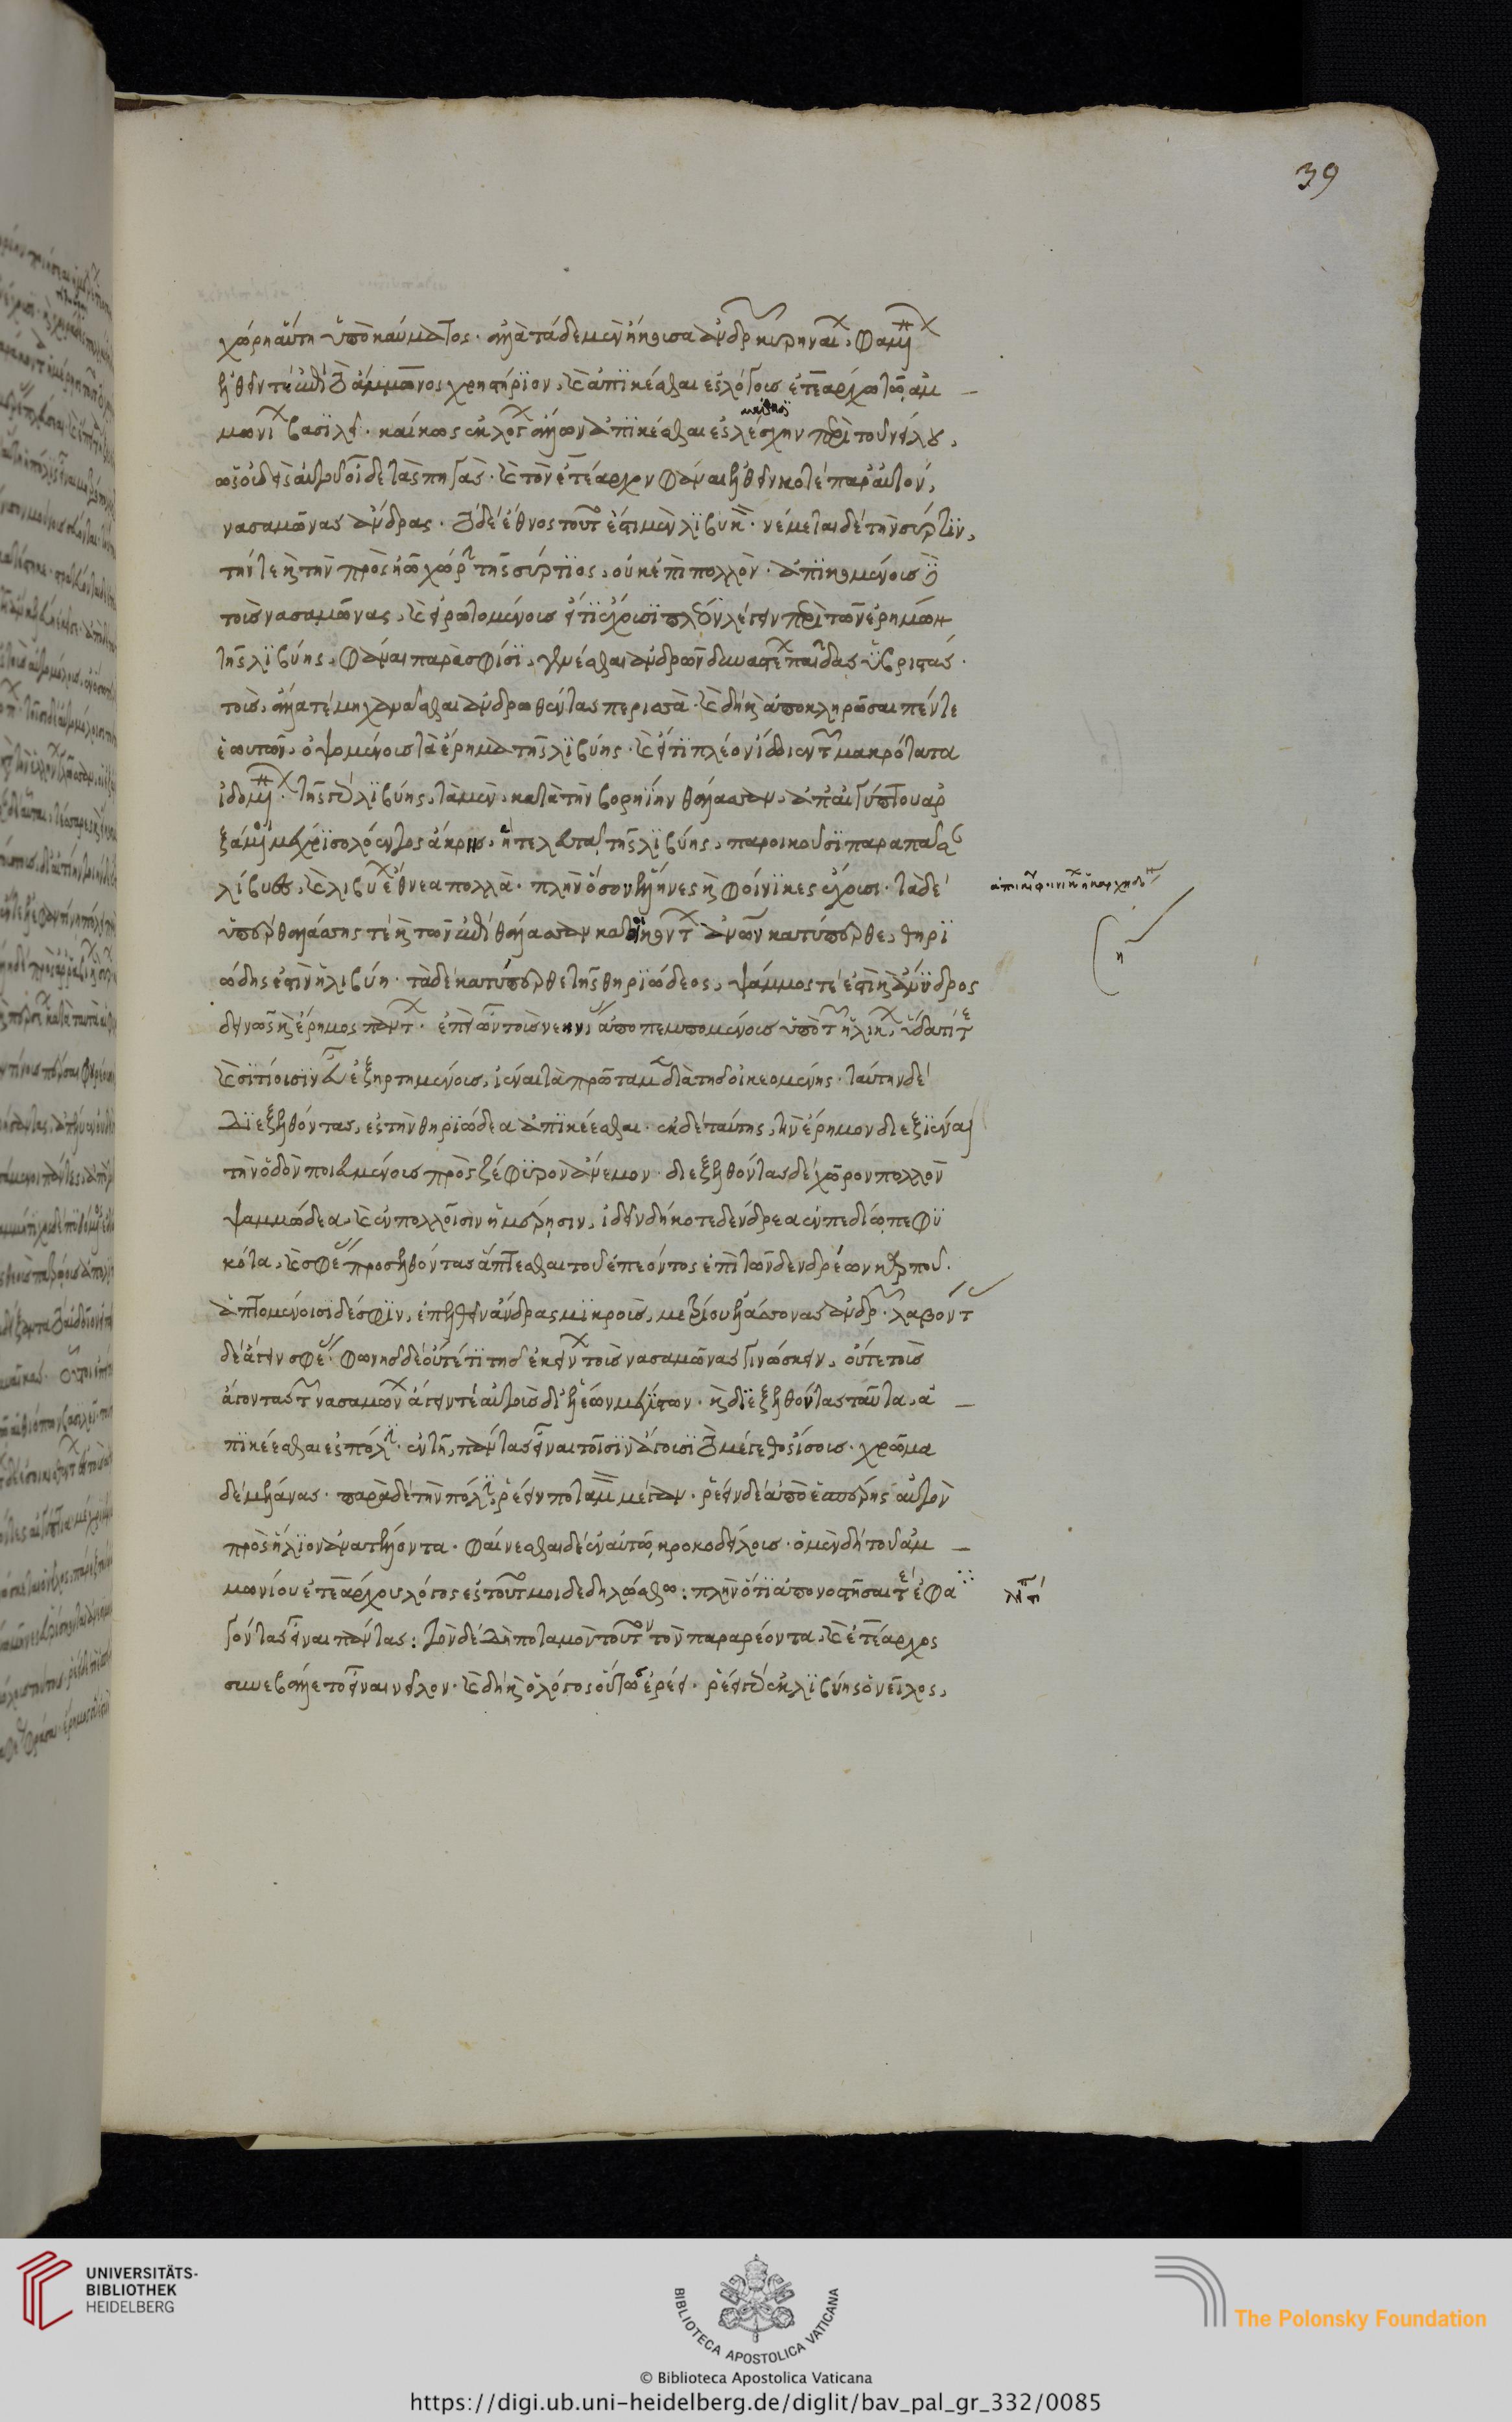 39
χώρη αὕτη ὑπὸ καύματος· ἀλλὰ τάδε μὲν ἤκουσα ἀνδρῶν κυρηναίων, φαμένων
ἐλθεῖν τε ἐπὶ τὸ ἄμμωνος χρηστήριον, καὶ ἀπικέσθαι ἐς λόγους ἐτεάρχῳ τῷ ἀμ
μωνίων βασιλεῖ· καί κως ἐκ λόγων ἄλλων ἀπικέσθαι ἐς λέσχην περὶ τοῦ νείλου,
ὡς οὐδεὶς αὐτοῦ οἶδε τὰς πηγάς· καὶ τὸν ἐτέαρχον φάναι ἐλθεῖν κοτέ παρ' αὐτόν,
νασαμῶνας ἄνδρας· τὸ δὲ ἔθνος τοῦτο ἐστὶ μὲν λιβυκὸν· νέμεται δὲ τὴν σύρτιν,
τήν τε καὶ τὴν πρὸς ἠῶ χώρην τῆς σύρτιος, οὐκ ἐπὶ πολλὸν· ἀπικομένους δὲ
τοὺς νασαμῶνας, καὶ εἰρωτομένους εἴ τι ἔχουσι πλέον λέγειν περὶ τῶν ἐρήμων
τῆς λιβύης, φάναι παρὰ σφίσι, γενέσθαι ἀνδρῶν δυναστέων παῖδας ὑβριστάς·
τοὺς, ἄλλα τέ μηχανᾶσθαι ἀνδρωθέντας περισσὰ· καὶ δὴ καὶ ἀποκληρῶσαι πέντε
ἑωυτῶν, ὀψομένους τὰ ἔρημα τῆς λιβύης· καὶ εἴ τι πλέον ἴδοιεν τῶν μακρότατα
ἰδομένων· τῆς γὰρ λιβύης, τὰ μὲν κατὰ τὴν βορηίην θάλασσαν, ἀπ' αἰγύπτου ἀρ
ξάμενοι μέχρι σολόεντος ἄκρης, ἣ τελευτᾷ τῆς λιβύης, παροικοῦσι παρὰ πᾶσαν
λίβυες, καὶ λιβύων ἔθνεα πολλὰ· πλὴν ὅσον ἕλληνες καὶ φοίνικες ἔχουσι· τὰ δὲ
ὑπὲρ θαλάσσης τέ καὶ τῶν ἐπὶ θάλασσαν κατηκόντων ἀνθρώπων κατύπερθε, θηρι
ώδης ἐστὶν ἡ λιβύη· τὰ δὲ κατύπερθε τῆς θηριώδεος, ψάμμος τέ ἐστὶ καὶ ἄνυδρος
δεινῶς καὶ ἔρημος πάντων· ἐπεὶ ὦν τοὺς νεηνίας ἀποπεμπομένους ὑπὸ τῶν ἡλίκων, ὕδασί τε
καὶ σιτίοισιν εὖ ἐξηρτημένους, ἰέναι τὰ πρῶτα μὲν διὰ τῆς οἰκεομένης· ταύτην δὲ
διεξελθόντας, ἐς τὴν θηριώδεα ἀπικέεσθαι· ἐκ δὲ ταύτης, τὴν ἔρημον διεξιέναι
τὴν ὁδὸν ποιευμένους πρὸς ζέφυρον ἄνεμον· διεξελθόντας δὲ χῶρον πολλὸν
ψαμμώδεα, καὶ ἐν πολλοῖσιν ἡμέρῃσιν, ἰδεῖν δή κοτε δένδρεα ἐν πεδίῳ πεφυ
κότα, καὶ σφέας προσελθόντας ἅπτεσθαι τοῦ ἐπεόντος ἐπὶ τῶν δενδρέων καρποῦ.
ἁπτομένοισι δέ σφιν, ἐπελθεῖν ἄνδρας μικροὺς, μετρίου ἐλάσσονας ἀνδρῶν· λαβόντας
δὲ ἄγειν σφέας· φωνῆς δὲ οὔτέ τι τῆς ἐκείνων τοὺς νασαμῶνας γινώσκειν, οὔτε τοὺς
ἄγοντας τῶν νασαμώνων ἄγειν τὲ αὐτοὺς δι' ἑλέων μεγίστων· καὶ διεξελθόντας ταῦτα, ἀ
πικέεσθαι ἐς πόλιν· ἐν τῇ πάντας εἶναι τοῖσιν ἄγουσι τὸ μέγεθος ἴσους· χρῶμα
δὲ μέλανας· παρὰ δὲ τὴν πόλιν ῥέειν ποταμὸν μέγαν· ῥέειν δὲ ἀπὸ ἑσπέρης αὐτὸν
πρὸς ἥλιον ἀνατέλλοντα· φαίνεσθαι δὲ ἐν αὐτῷ κροκοδείλους· ὁ μὲν δὴ τοῦ ἀμ
μωνίου ἐτεάρχου λόγος ἐς τοῦτο μοι δεδηλώσθω: πλὴν ὅτι ἀπονοστῆσαί τε ἔφα
γόητας εἶναι πάντας: τὸν δὲ δὴ ποταμὸν τοῦτον τὸν παραρέοντα, καὶ ἐτέαρχος
συνεβάλλετο εἶναι νεῖλον· καὶ δὴ καὶ ὁ λόγος οὕτω αἱρέει· ῥέει γὰρ ἐκ λιβύης ὁ νεῖλος,
UNIVERSITÄTS-
BIBLIOTHEK
HEIDELBERG
BIBLIOTECA APOSTOLICA VATICANA
The Polonsky Foundation
© Biblioteca Apostolica Vaticana
https://digi.ub.uni-heidelberg.de/diglit/bav_pal_gr_332/0085